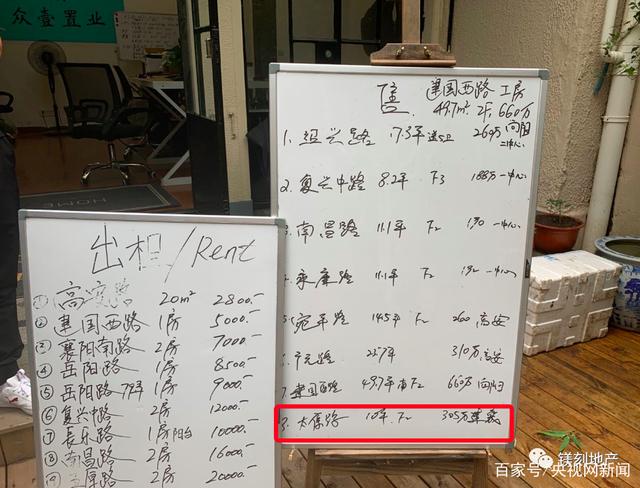 众壹置业
售 建国西路 工房
49.7m² 2F 660万
1. 绍兴路 17.3平 260万 向阳
2. 复兴中路 8.2平 F3 188万 一中心
3. 南昌路 11.1平 F2 190 一中心
4. 永康路 11.1平 F2 192 一中心
5. 宛平路 14.5平 F2 260 高安
6. 广元路 22.7平 310万 高安
7. 建国西路 49.7平 F2 660万 向阳
8. 太原路 10平 F2 305万
出租/Rent
① 20m² 2800.-
② 建国西路 1房 5000.-
③ 襄阳南路 2房 7000.-
④ 岳阳路 1房 8500.-
⑤ 岳阳路 1房 9000.-
⑥ 复兴中路 2房 12000.-
⑦ 长乐路 1房 阳台 10000.-
⑧ 南昌路 2房 16000.-
2房 20000.-
HOME
镁刻地产
百家号/央视网新闻